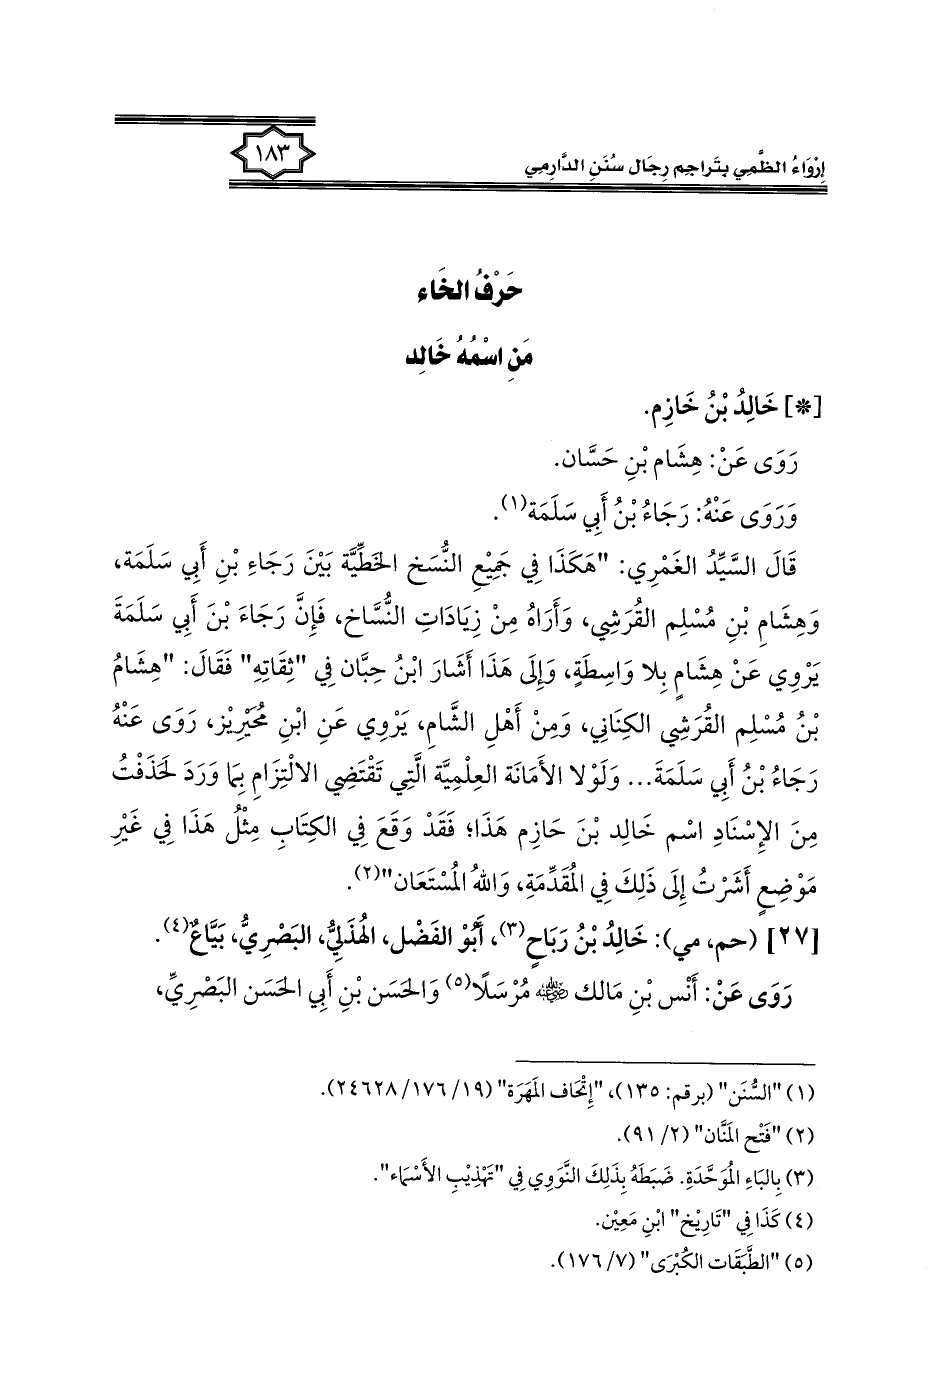 إِرْوَاءُ الظَّمِي بِتَراجِم رِجَال سُنَنِ الدَّارِمِي
١٨٣
حَرْفُ الخَاء
مَنِ اسْمُهُ خَالِد
[*] خَالِدُ بْنُ خَازِم.
رَوَى عَنْ: هِشَام بْنِ حَسَّان.
وَرَوَى عَنْهُ: رَجَاءُ بْنُ أَبِي سَلَمَة(١).
قَالَ السَّيِّدُ الغَمْرِي: "هَكَذَا فِي جَمِيْعِ النُّسَخِ الخَطِّيَّة بَيْنَ رَجَاءِ بْنِ أَبِي سَلَمَة،
وَهِشَامِ بْنِ مُسْلِم القُرَشِي، وَأَرَاهُ مِنْ زِيَادَاتِ النُّسَّاخ، فَإِنَّ رَجَاءَ بْنَ أَبِي سَلَمَةَ
يَرْوِي عَنْ هِشَامٍ بِلا وَاسِطَةٍ، وَإِلَى هَذَا أَشَارَ ابْنُ حِبَّان فِي "ثِقَاتِهِ" فَقَالَ: "هِشَامُ
بْنُ مُسْلِم القُرَشِي الكِنَانِي، وَمِنْ أَهْلِ الشَّام، يَرْوِي عَنِ ابْنِ مُحَيْرِيز، رَوَى عَنْهُ
رَجَاءُ بْنُ أَبِي سَلَمَةَ... وَلَوْلا الأَمَانَة العِلْمِيَّة الَّتِي تَقْتَضِي الالْتِزَام بِمَا وَرَدَ لَحَذَفْتُ
مِنَ الإِسْنَادِ اسْم خَالِد بْنَ حَازِم هَذَا؛ فَقَدْ وَقَعَ فِي الكِتَابِ مِثْلُ هَذَا فِي غَيْرِ
مَوْضِعٍ أَشَرْتُ إِلَى ذَلِكَ فِي المُقَدِّمَةِ، وَاللهُ المُسْتَعَان"(٢).
[٢٧] (حم، مي): خَالِدُ بْنُ رَبَاحٍ(٣)، أَبُوْ الفَضْل، الهُذَلِيُّ، البَصْرِيُّ، بَيَّاعٌ(٤).
رَوَى عَنْ: أَنَس بْنِ مَالك رضي الله عنه مُرْسَلًا(٥) وَالحَسَن بْنِ أَبِي الحَسَن البَصْرِيِّ،
(١) "السُّنَن" (برقم: ١٣٥)، "إِتْحَاف المَهَرَة" (١٩/ ١٧٦/ ٢٤٦٢٨).
(٢) "فَتْح المَنَّان" (٢/ ٩١).
(٣) بِالبَاءِ المُوَحَّدَةِ. ضَبَطَهُ بِذَلِكَ النَّوَوِي فِي "تَهْذِيْبِ الأَسْمَاء".
(٤) كَذَا فِي "تَارِيْخ" ابْنِ مَعِيْن.
(٥) "الطَّبَقَات الكُبْرَى" (٧/ ١٧٦).